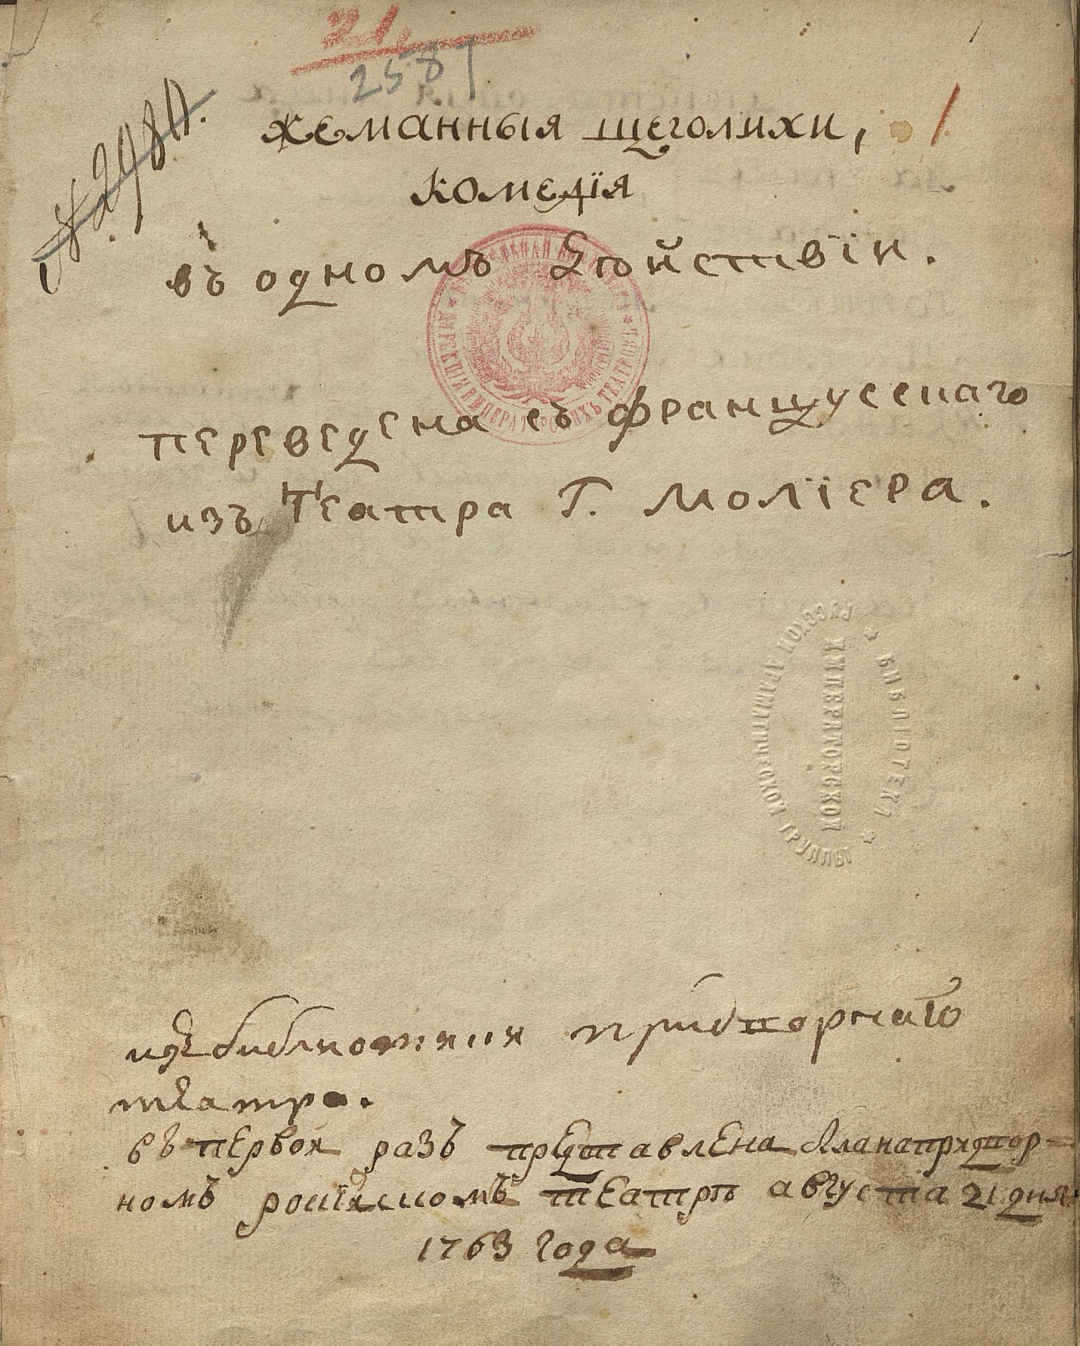 21,
2587
№ 2980.
Жеманныя щеголихи,
комедїя
въ одномъ дѣйствїи.
переведена съ французскаго
изъ Театра Г. Молїера.
БИБЛІОТЕКА
ИМПЕРАТОРСКОЙ
РУССКОЙ ДРАМАТИЧЕСКОЙ ТРУППЫ
ДИРЕКЦІЯ ИМПЕРАТОРСКИХЪ ТЕАТРОВЪ
изъ библиотеки придворнаго
театра.
въ первои разъ представлена была на придвор-
номъ росїискомъ театрѣ августа 21 дня
1763 года